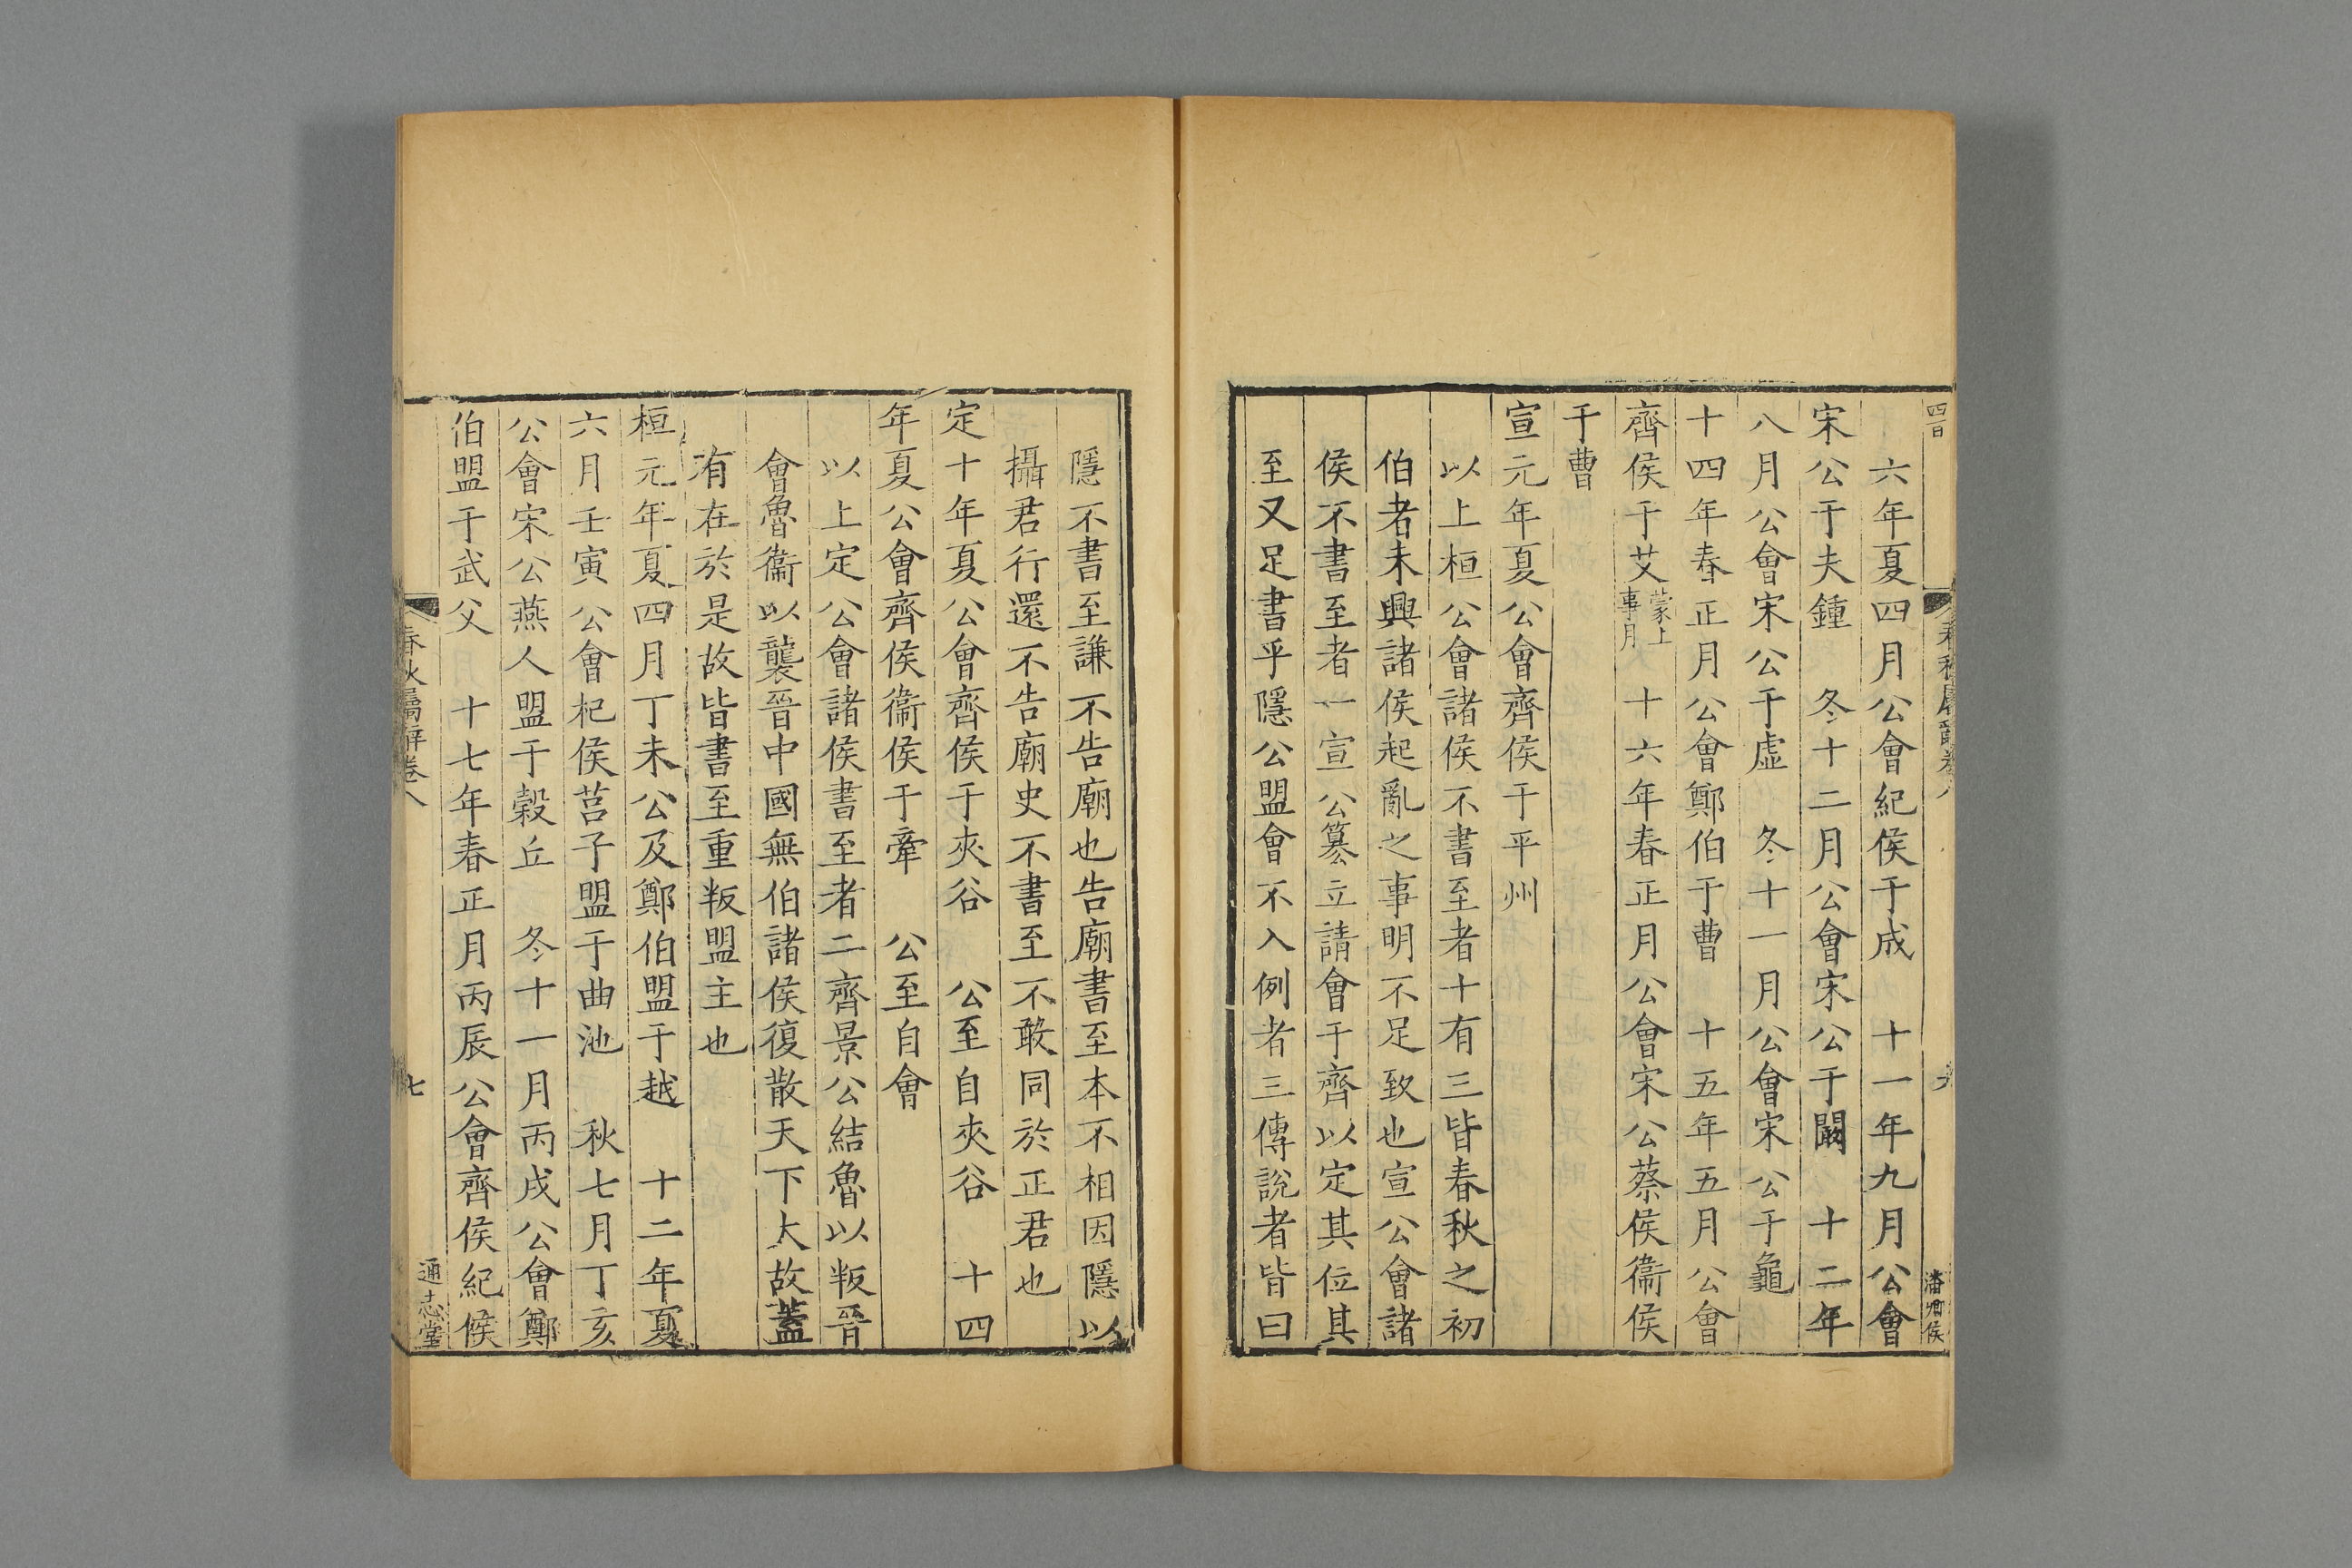 六年夏四月公會紀侯于成　十一年九月公會
宋公于夫鍾　冬十二月公會宋公于闞　十二年
八月公會宋公于虛　冬十一月公會宋公于龜
十四年春正月公會鄭伯于曹　十五年五月公會
齊侯于艾蒙上事月　十六年春正月公會宋公蔡侯衞侯
于曹
宣元年夏公會齊侯于平州
以上桓公會諸侯不書至者十有三皆春秋之初
伯者未興諸侯起亂之事明不足致也宣公會諸
侯不書至者一宣公篡立請會于齊以定其位其
至又足書乎隱公盟會不入例者三傳說者皆曰
隱不書至謙不告廟也告廟書至本不相因隱以
攝君行還不告廟史不書至不敢同於正君也
定十年夏公會齊侯于夾谷　公至自夾谷　十四
年夏公會齊侯衞侯于牽　公至自會
以上定公會諸侯書至者二齊景公結魯以叛晉
會魯衞以襲晉中國無伯諸侯復散天下大故蓋
有在於是故皆書至重叛盟主也
桓元年夏四月丁未公及鄭伯盟于越　十二年夏
六月壬寅公會杞侯莒子盟于曲池　秋七月丁亥
公會宋公燕人盟于穀丘　冬十一月丙戌公會鄭
伯盟于武父　十七年春正月丙辰公會齊侯紀侯
春秋屬辭卷八
七
通志堂